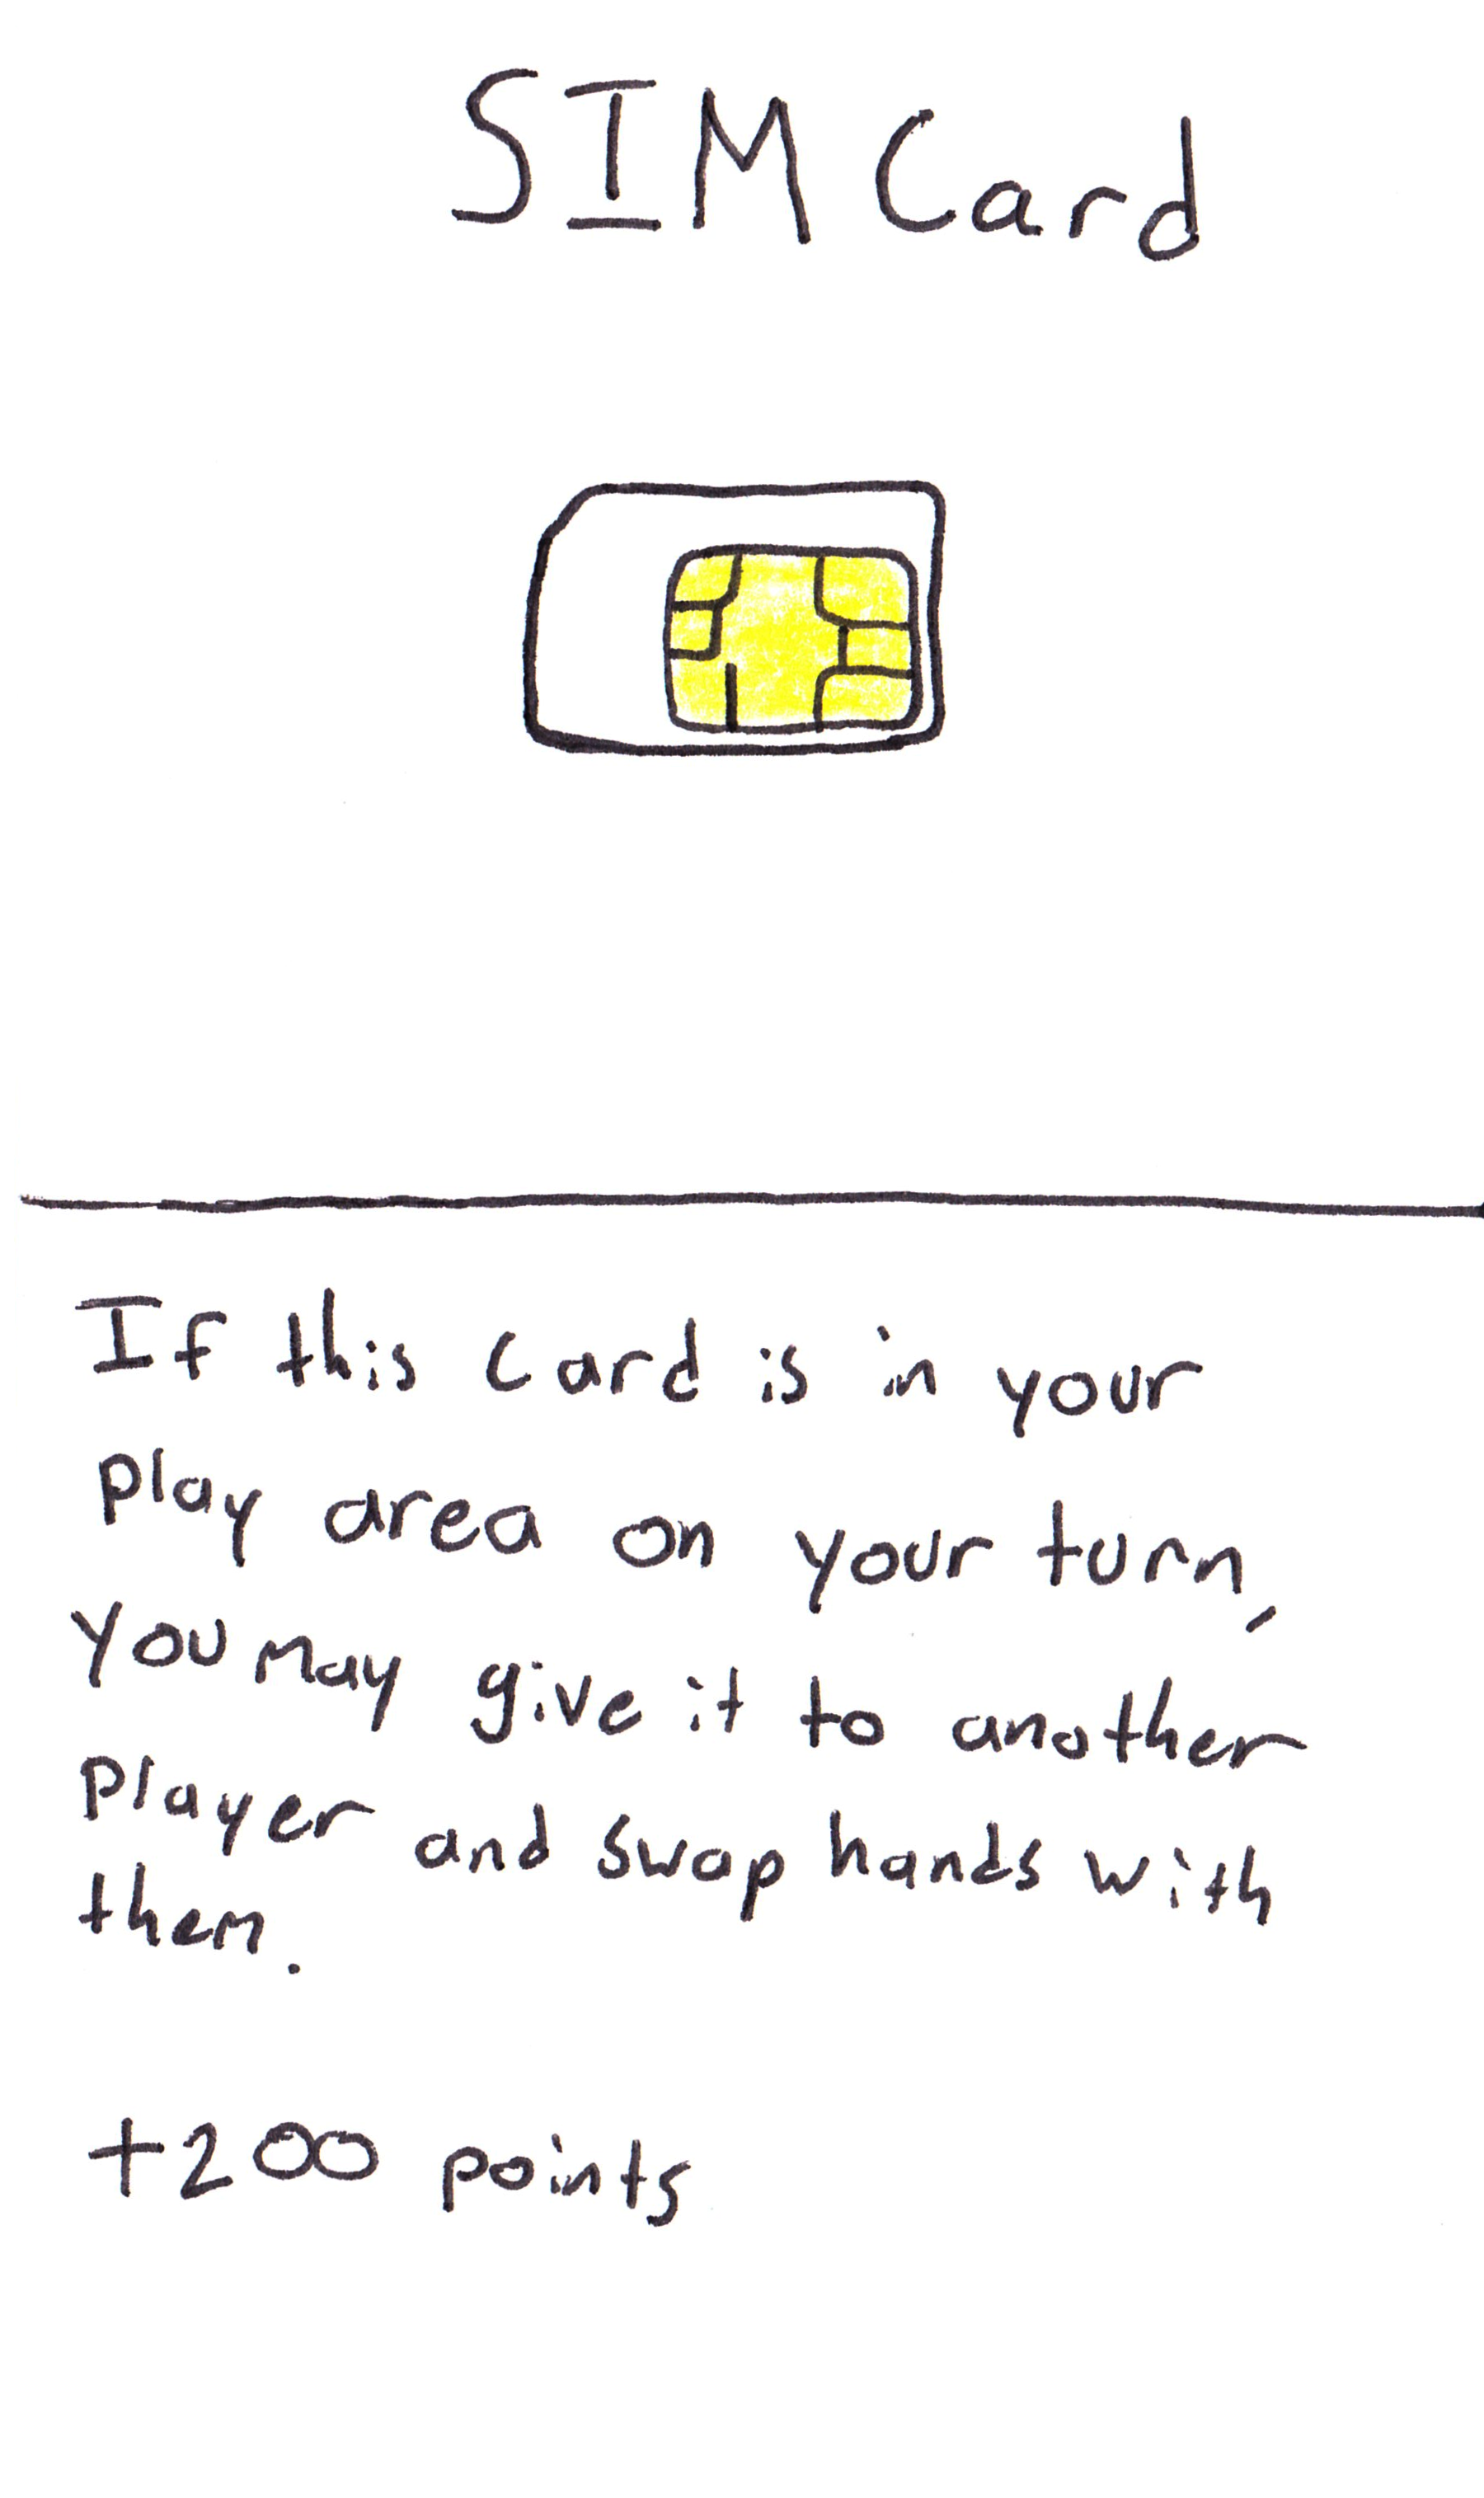 SIM Card
If this card is in your
play area on your turn,
you may give it to another
player and swap hands with
them.
+200 points